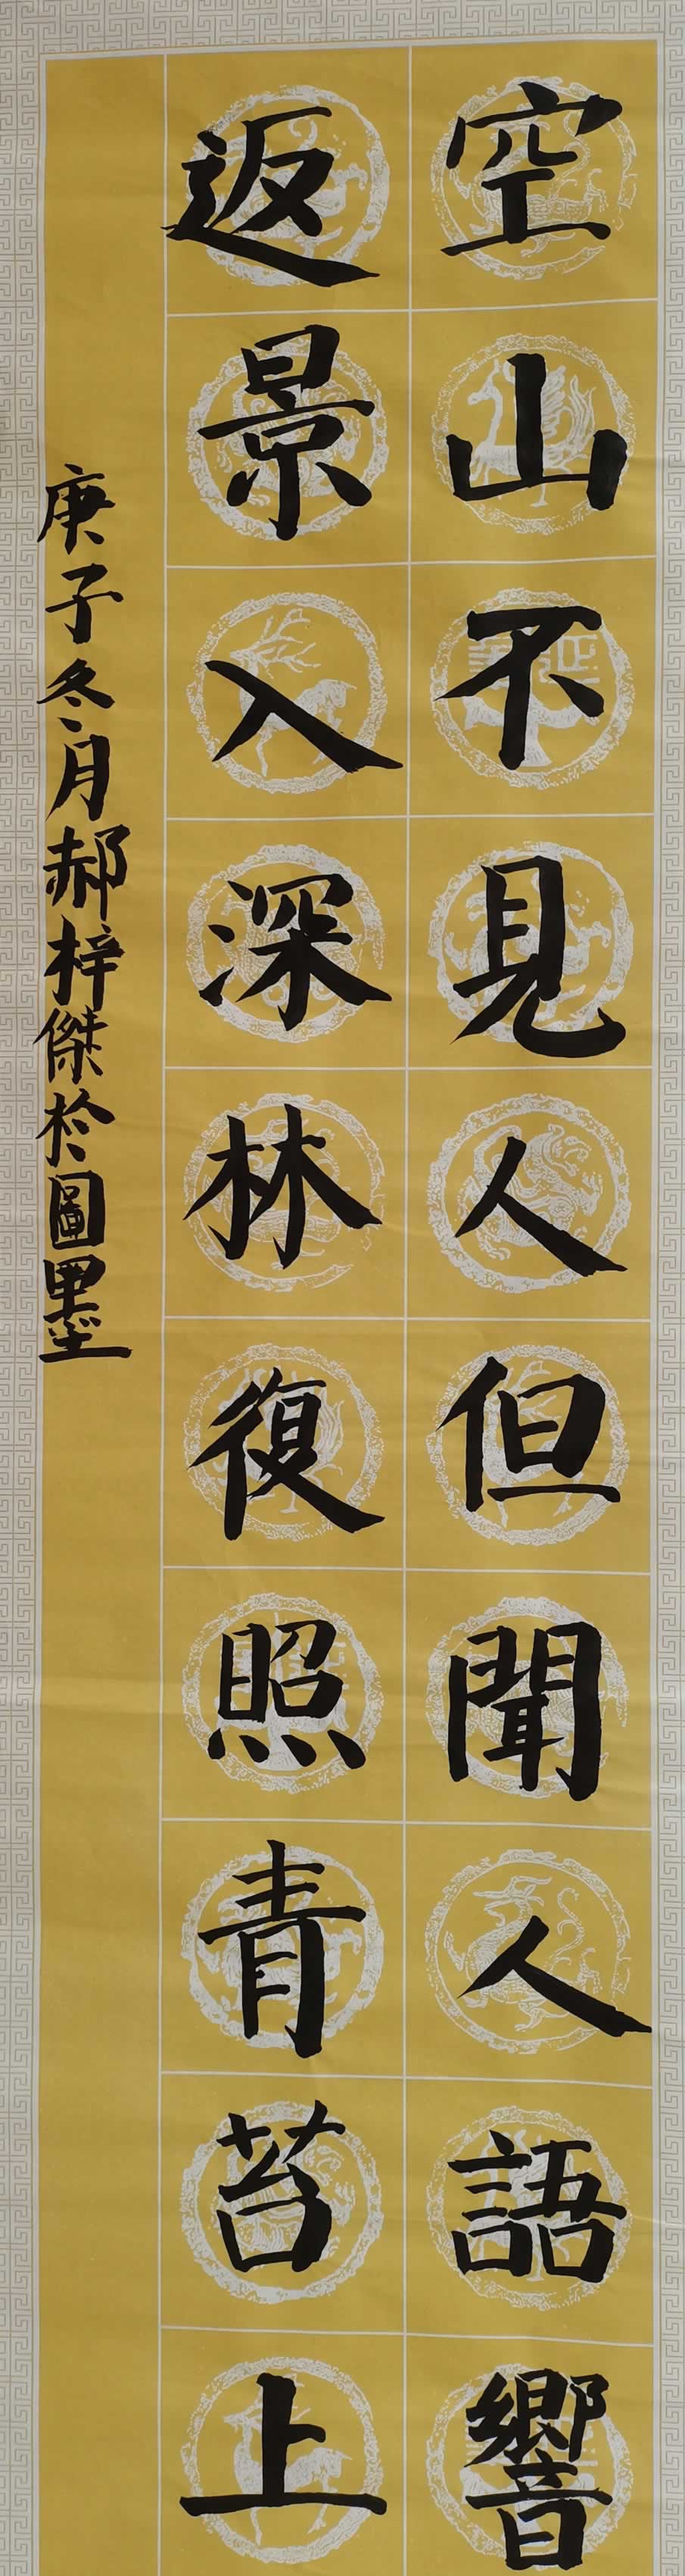 空山不見人但聞人語響
返景入深林復照青苔上
庚子冬月郝梓傑於圖墨